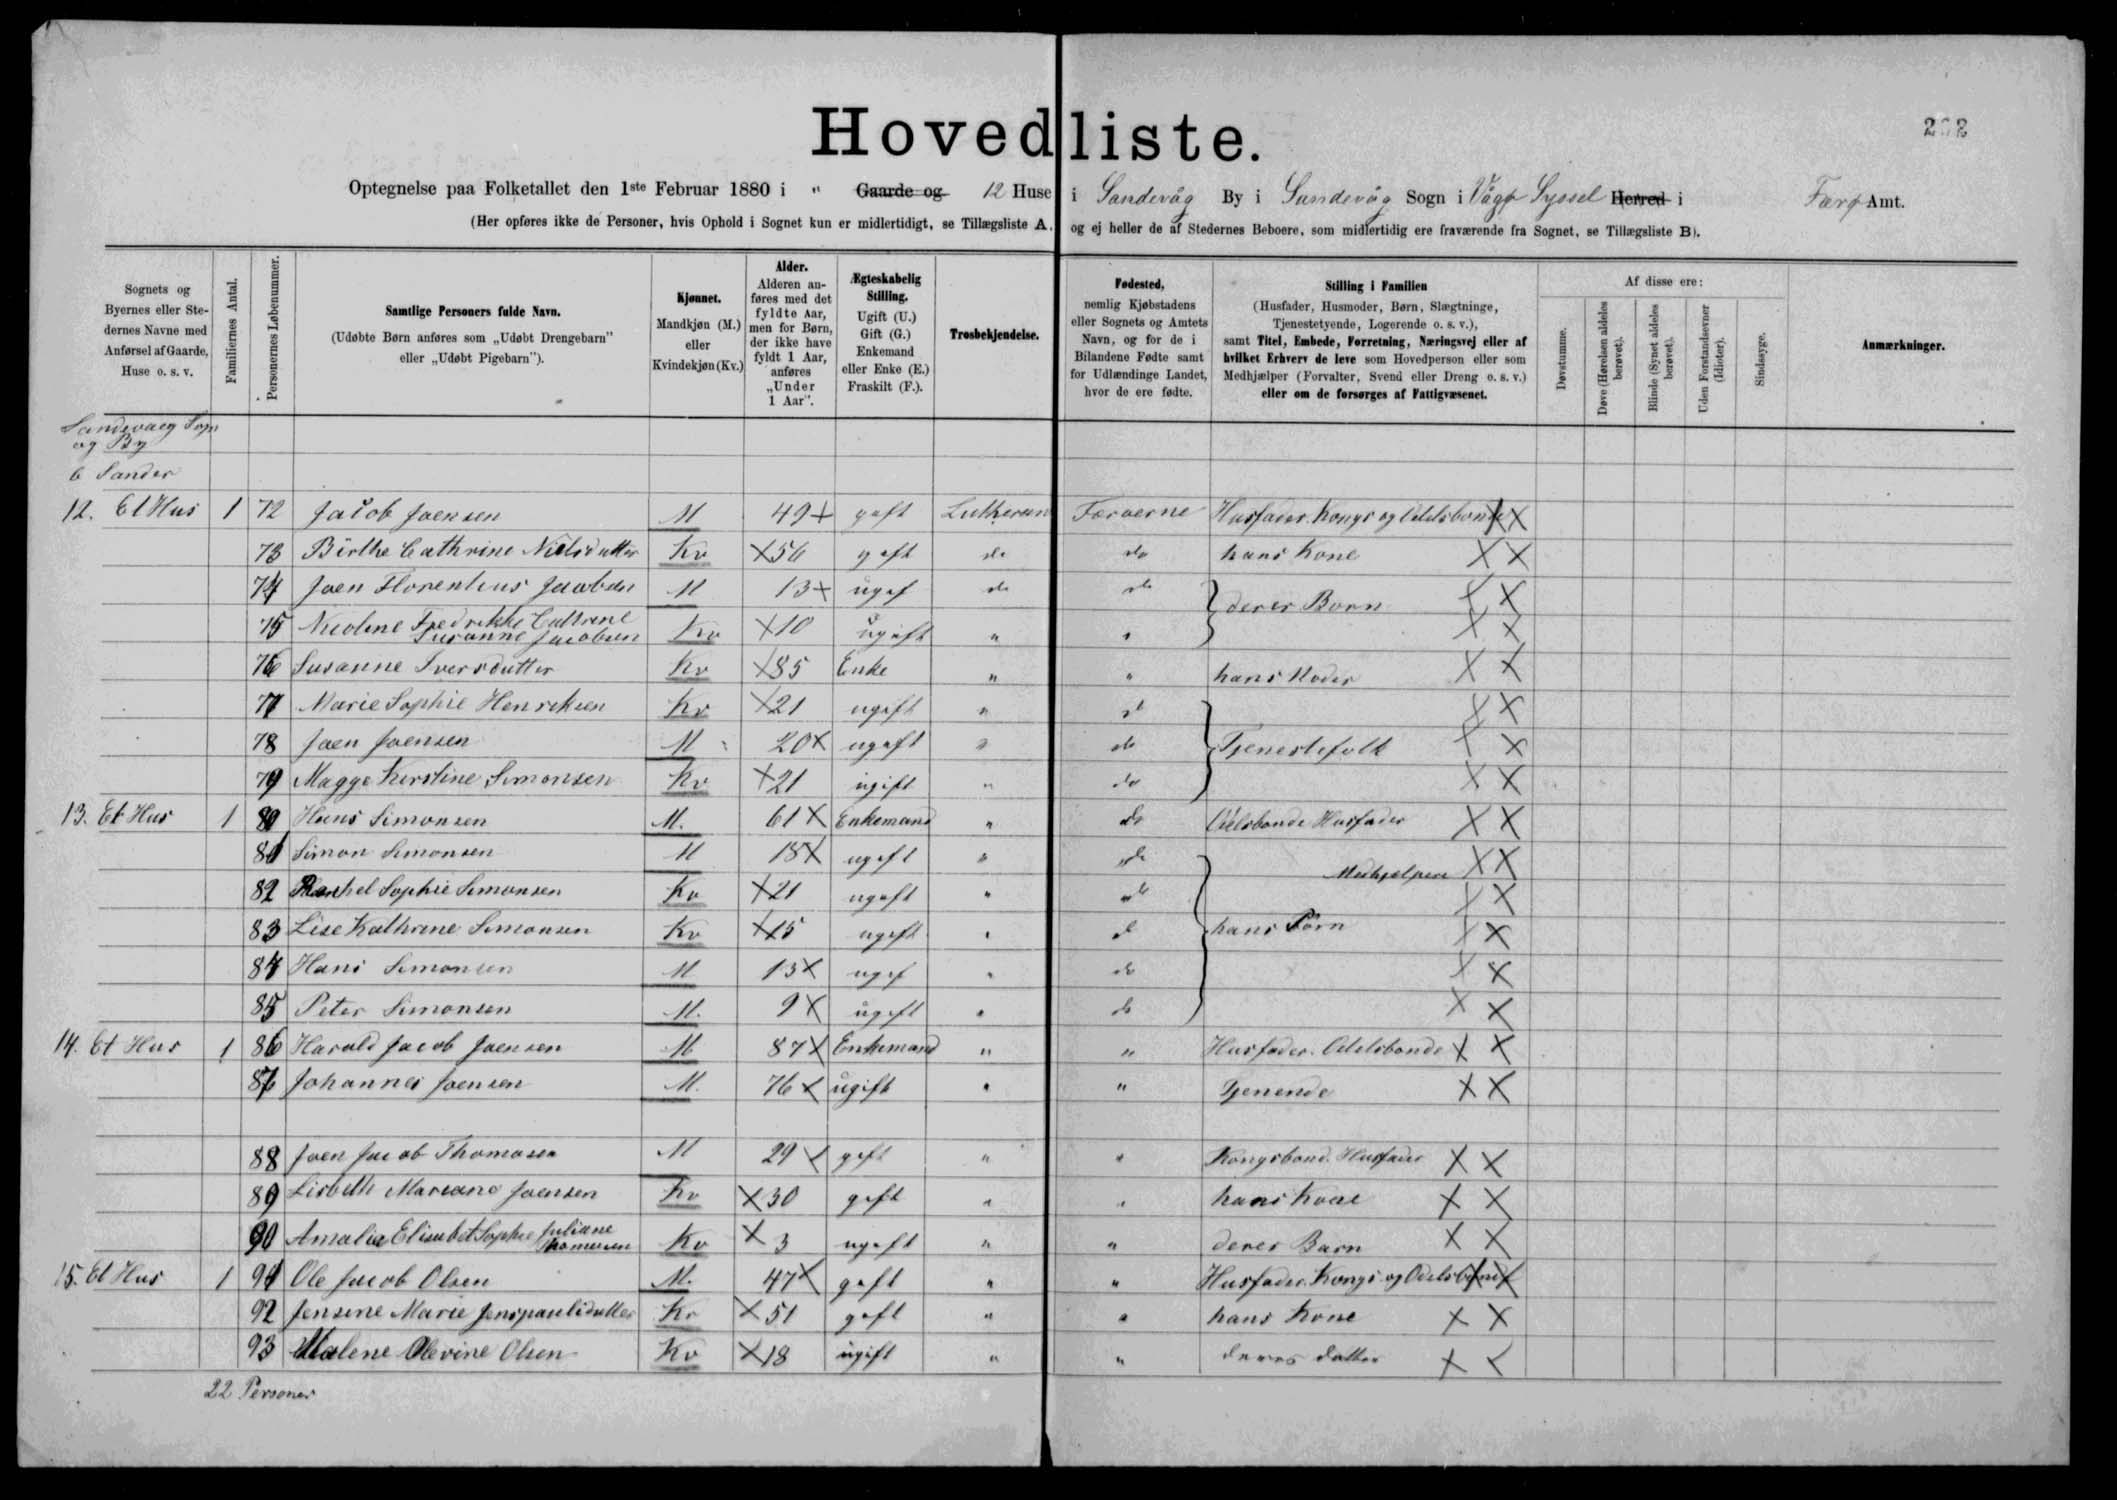 Hovedliste.
202
Optegnelse paa Folketallet den 1ste Februar 1880 i " Gaarde og 12 Huse i Sandevåg By i Sandevåg Sogn i Vågø Syssel Herred i Færø Amt.
(Her opføres ikke de Personer, hvis Ophold i Sognet kun er midlertidigt, se Tillægsliste A. og ej heller de af Stedernes Beboere, som midlertidig ere fraværende fra Sognet, se Tillægsliste B).
Sognets og Byernes eller Stedernes Navne med Anførsel af Gaarde, Huse o. s. v.
Familiernes Antal.
Personernes Løbenummer.
Samtlige Personers fulde Navn.
(Udøbte Børn anføres som „Udøbt Drengebarn" eller „Udøbt Pigebarn").
Kjønnet.
Mandkjøn (M.) eller Kvindekjøn (Kv.)
Alder.
Alderen anføres med det fyldte Aar, men for Børn, der ikke have fyldt 1 Aar, anføres „Under 1 Aar".
Ægteskabelig Stilling.
Ugift (U.) Gift (G.) Enkemand eller Enke (E.) Fraskilt (F.).
Trosbekjendelse.
Fødested,
nemlig Kjøbstadens eller Sognets og Amtets Navn, og for de i Bilandene Fødte samt for Udlændinge Landet, hvor de ere fødte.
Stilling i Familien
(Husfader, Husmoder, Børn, Slægtninge, Tjenestetyende, Logerende o. s. v.),
samt Titel, Embede, Forretning, Næringsvej eller af hvilket Erhverv de leve som Hovedperson eller som Medhjælper (Forvalter, Svend eller Dreng o. s. v.) eller om de forsørges af Fattigvæsenet.
Af disse ere:
Døvstumme.
Døve (Hørelsen aldeles berøvet).
Blinde (Synet aldeles berøvet).
Uden Forstandsevner (Idioter).
Sindssyge.
Anmærkninger.
Sandevaag Sogn
og By
6 Sander
12. Et Hus 1 72 Jacob Joensen M 49 gift Lutheran Færøerne Husfader. Kongs og Odelsbonde X X
73 Birthe Cathrine Nielsdatter Kv X 56 gift do do hans Kone X X
74 Joen Florentius Jacobsen M 13 X ugif do do } deres Børn X X
75 Nicoline Fredrikke Cathrine Susanne Jacobsen Kv X 10 ugift " " X X
76 Susanne Iversdatter Kv X 85 Enke " " hans Moder X X
77 Marie Sophie Henriksen Kv X 21 ugift " do X X
78 Joen Joensen M 20 X ugift " do } Tjenestefolk X X
79 Magge Kirstine Simonsen Kv X 21 ugift " do X X
13. Et Hus 1 80 Hans Simonsen M. 61 X Enkemand " do Odelsbonde Husfader X X
81 Simon Simonsen M 18 X ugift " do Medhjelper X X
82 Rachel Sophie Simonsen Kv X 21 ugift " do X X
83 Lise Kathrine Simonsen Kv X 15 ugift " do } hans Børn X X
84 Hans Simonsen M 13 X ugif " do X X
85 Peter Simonsen M. 9 X ugift " do X X
14. Et Hus 1 86 Harald Jacob Joensen M 87 X Enkemand " " Husfader. Odelsbonde X X
87 Johannes Joensen M. 76 X ugift " " Tjenende X X
88 Joen Jacob Thomasen M 29 X gift " " Kongsbond. Husfader X X
89 Lisbeth Mariane Joensen Kv X 30 gift " " hans Kone X X
90 Amalia Elisabet Sophie Juliane Thomassen Kv X 3 ugift " " deres Barn X X
15. Et Hus 1 91 Ole Jacob Olsen M. 47 X gift " " Husfader. Kongs og Odelsbond X X
92 Jensine Marie Jenspaulidatter Kv X 51 gift " " hans Kone X X
93 Malene Olevine Olsen Kv X 18 ugift " " deres datter X X
22 Personer